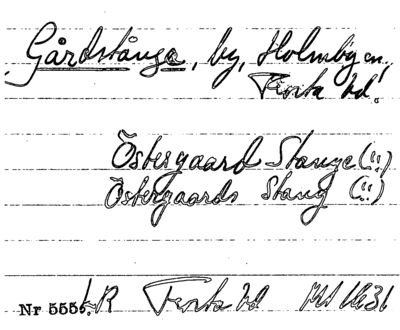 Gårdstånga, by, Holmby sn,
Frosta hd.
Östergaard Stange (!!)
Östergaards Stang (!!)
Nr 555. LR Frosta hd 1631